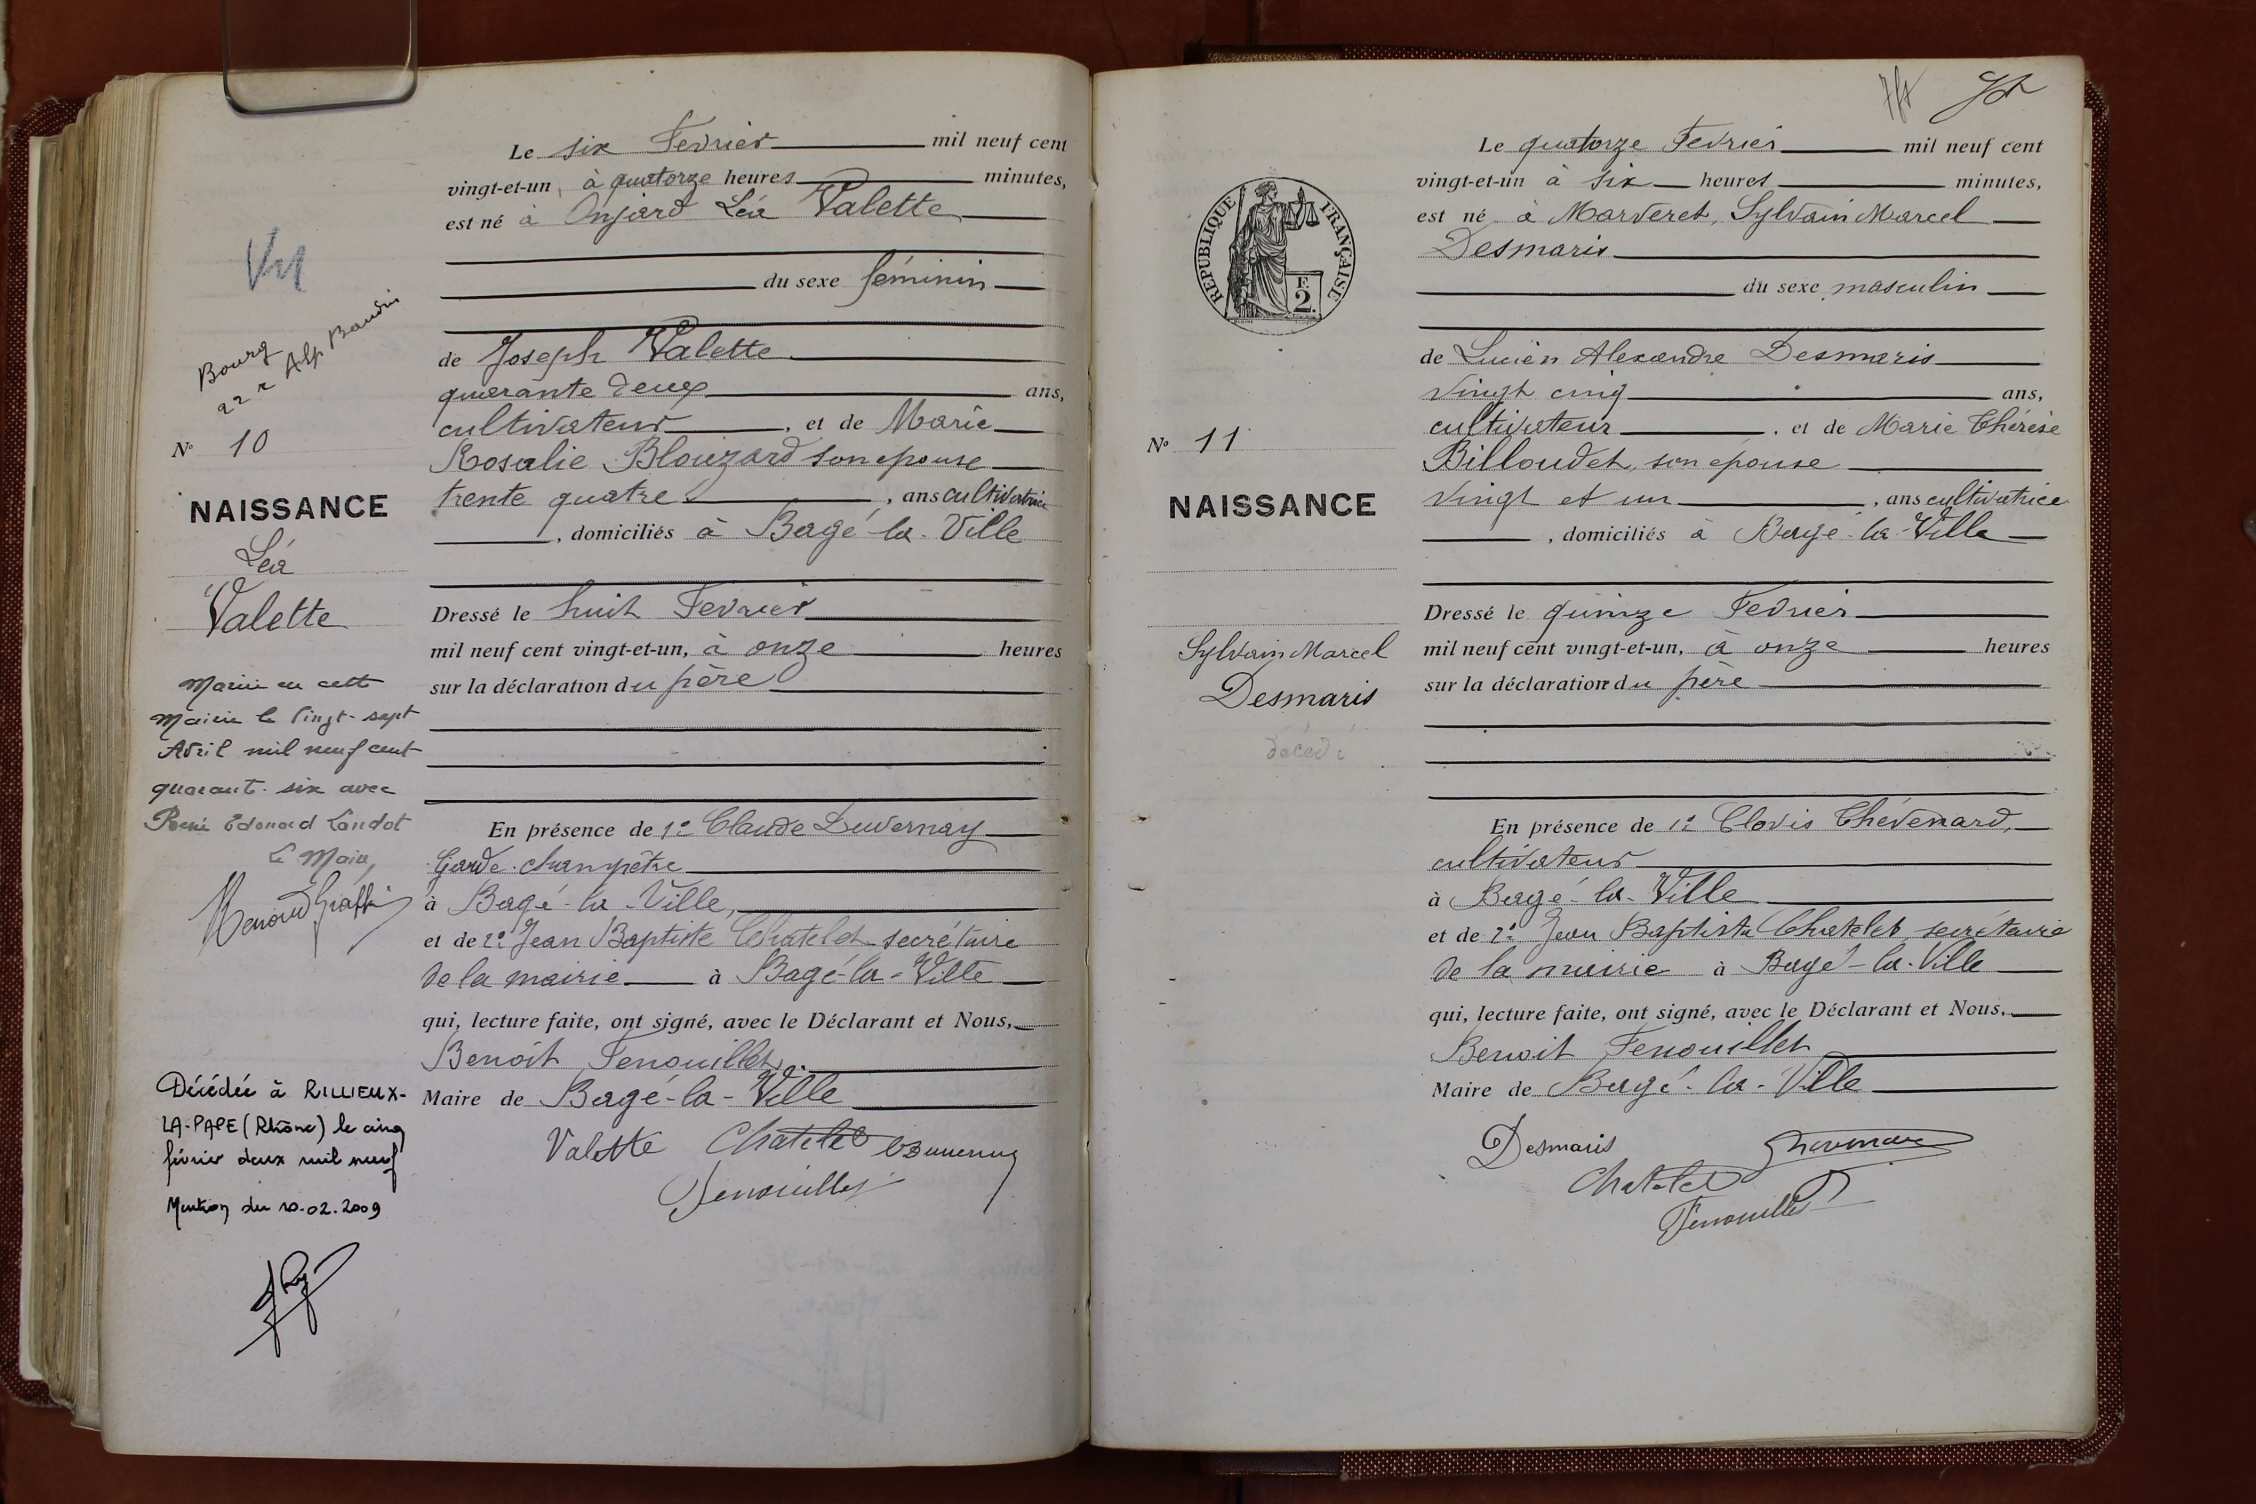 Le six Fevrier mil neuf cent
vingt-et-un, à quatorze heures minutes,
est né à Onjard Léa Valette
du sexe féminin
de Joseph Valette
quarante deux ans,
cultivateur, et de Marie
Rosalie Blouzard son epouse
trente quatre, ans cultivatrice
, domiciliés à Bagé-la-Ville
Dressé le huit Fevrier
mil neuf cent vingt-et-un, à onze heures
sur la déclaration du père
En présence de 1º Claude Duvernay
Garde-champêtre
à Bagé-la-Ville,
et de 2º Jean Baptiste Chatelet secrétaire
de la mairie à Bagé-la-Ville
qui, lecture faite, ont signé, avec le Déclarant et Nous,
Benoit Fenouillet
Maire de Bagé-la-Ville
Valette Chatelet
Fenouillet
Vu
Bourg
22 r Alp Baudin
Nº 10
NAISSANCE
Léa
Valette
Mariée en cette
Mairie le vingt-sept
Avril mil neuf cent
quarante-six avec
René Edouard Landot
Le Maire,
Décédée à RILLIEUX-
LA-PAPE (Rhône) le cinq
février deux mil neuf
Mention du 10.02.2009
Le quatorze Fevrier mil neuf cent
vingt-et-un à six heures minutes,
est né à Marveret, Sylvain Marcel
Desmaris
du sexe masculin
de Lucien Alexandre Desmaris
vingt cinq ans,
cultivateur, et de Marie Thérèse
Billoudet, son epouse
vingt et un, ans cultivatrice
, domiciliés à Bagé-la-Ville
Dressé le quinze Fevrier
mil neuf cent vingt-et-un, à onze heures
sur la déclaration du père
En présence de 1º Clovis Thévenard,
cultivateur
à Bagé-la-Ville
et de 2º Jean Baptiste Chatelet, secrétaire
de la mairie à Bagé-la-Ville
qui, lecture faite, ont signé, avec le Déclarant et Nous,
Benoit Fenouillet
Maire de Bagé-la-Ville
Desmaris Thevenard
Chatelet
Fenouillet
RÉPUBLIQUE FRANÇAISE
F
2.
Nº 11
NAISSANCE
Sylvain Marcel
Desmaris
décédé